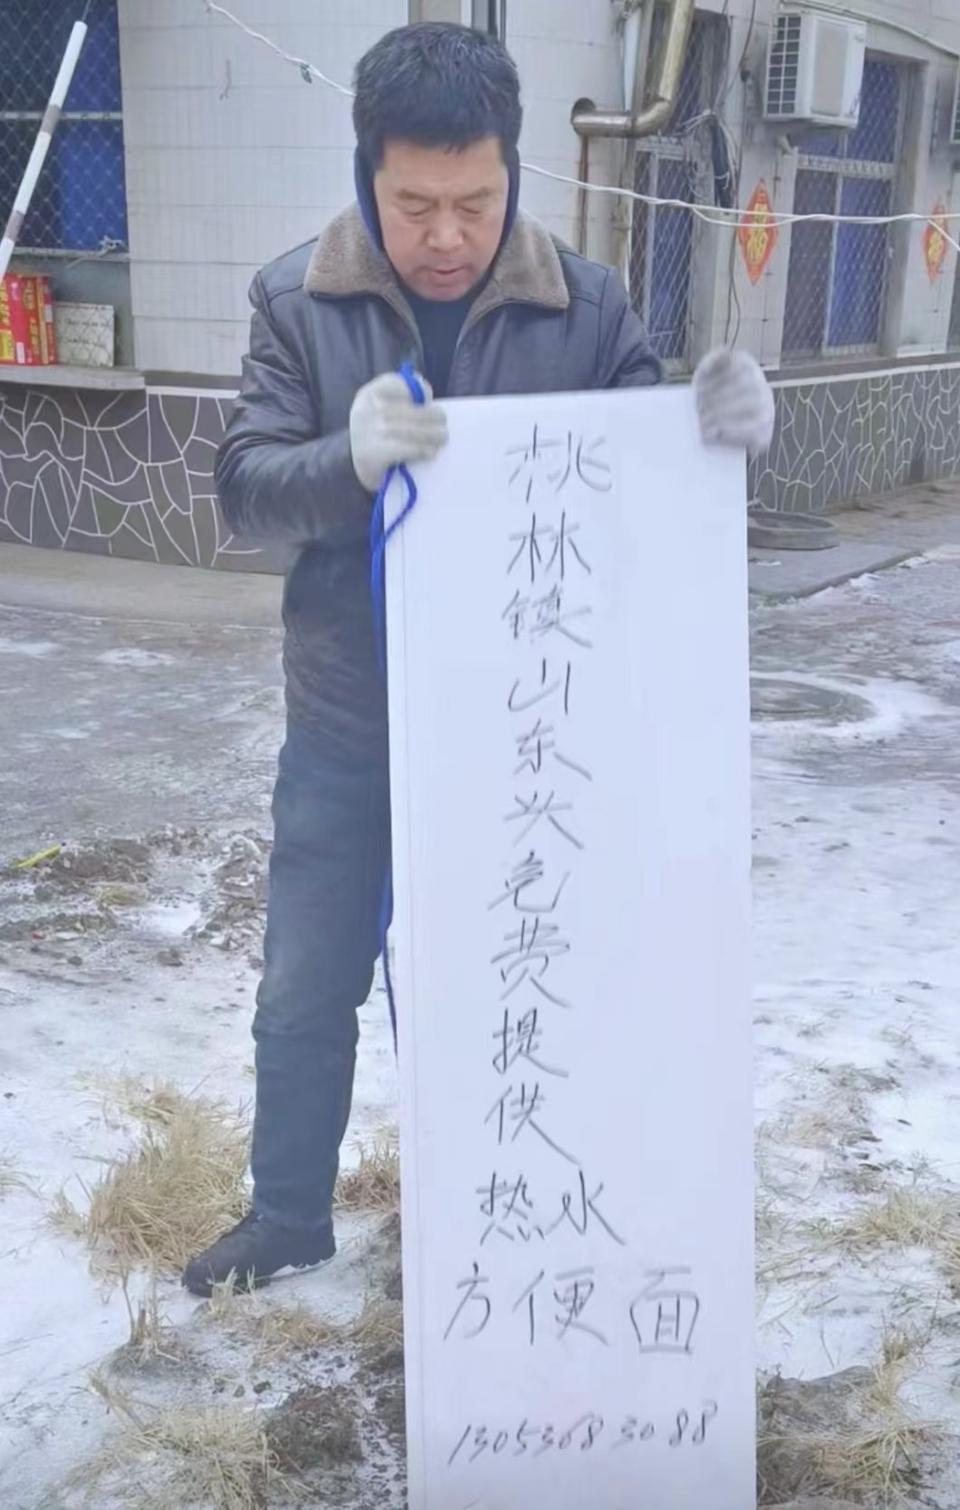 桃林镇山东兴免费提供
热水
方便面
13053683088